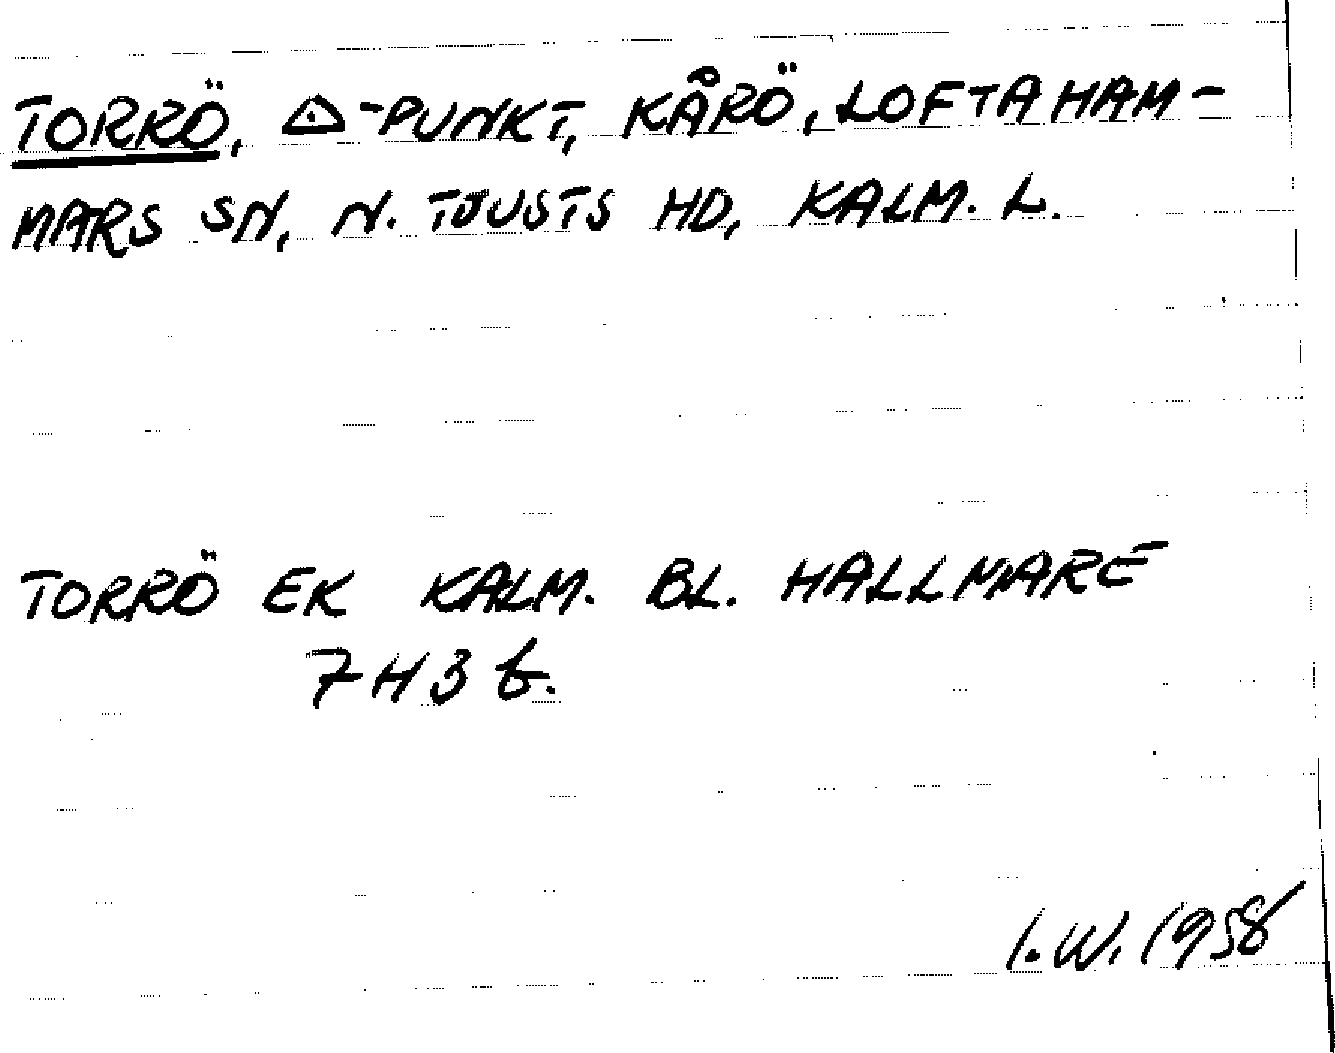 TORRÖ, ⟁-PUNKT, KÅRÖ, LOFTAHAM-
MARS SN, N. TJUSTS HD, KALM. L.
TORRÖ EK KALM. BL. HALLMARE
7H3b.
I.W. 1958